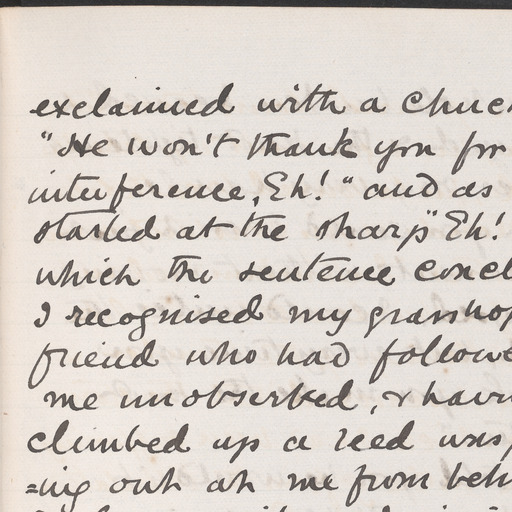 exclaimed with a chuc
"He won't thank you for
interference, Eh!" and as
started at the sharp "Eh!
which the sentence concl
I recognised my grasshop
friend who had followe
me unobserved, & havin
climbed up a reed was
=ing out at me from beh